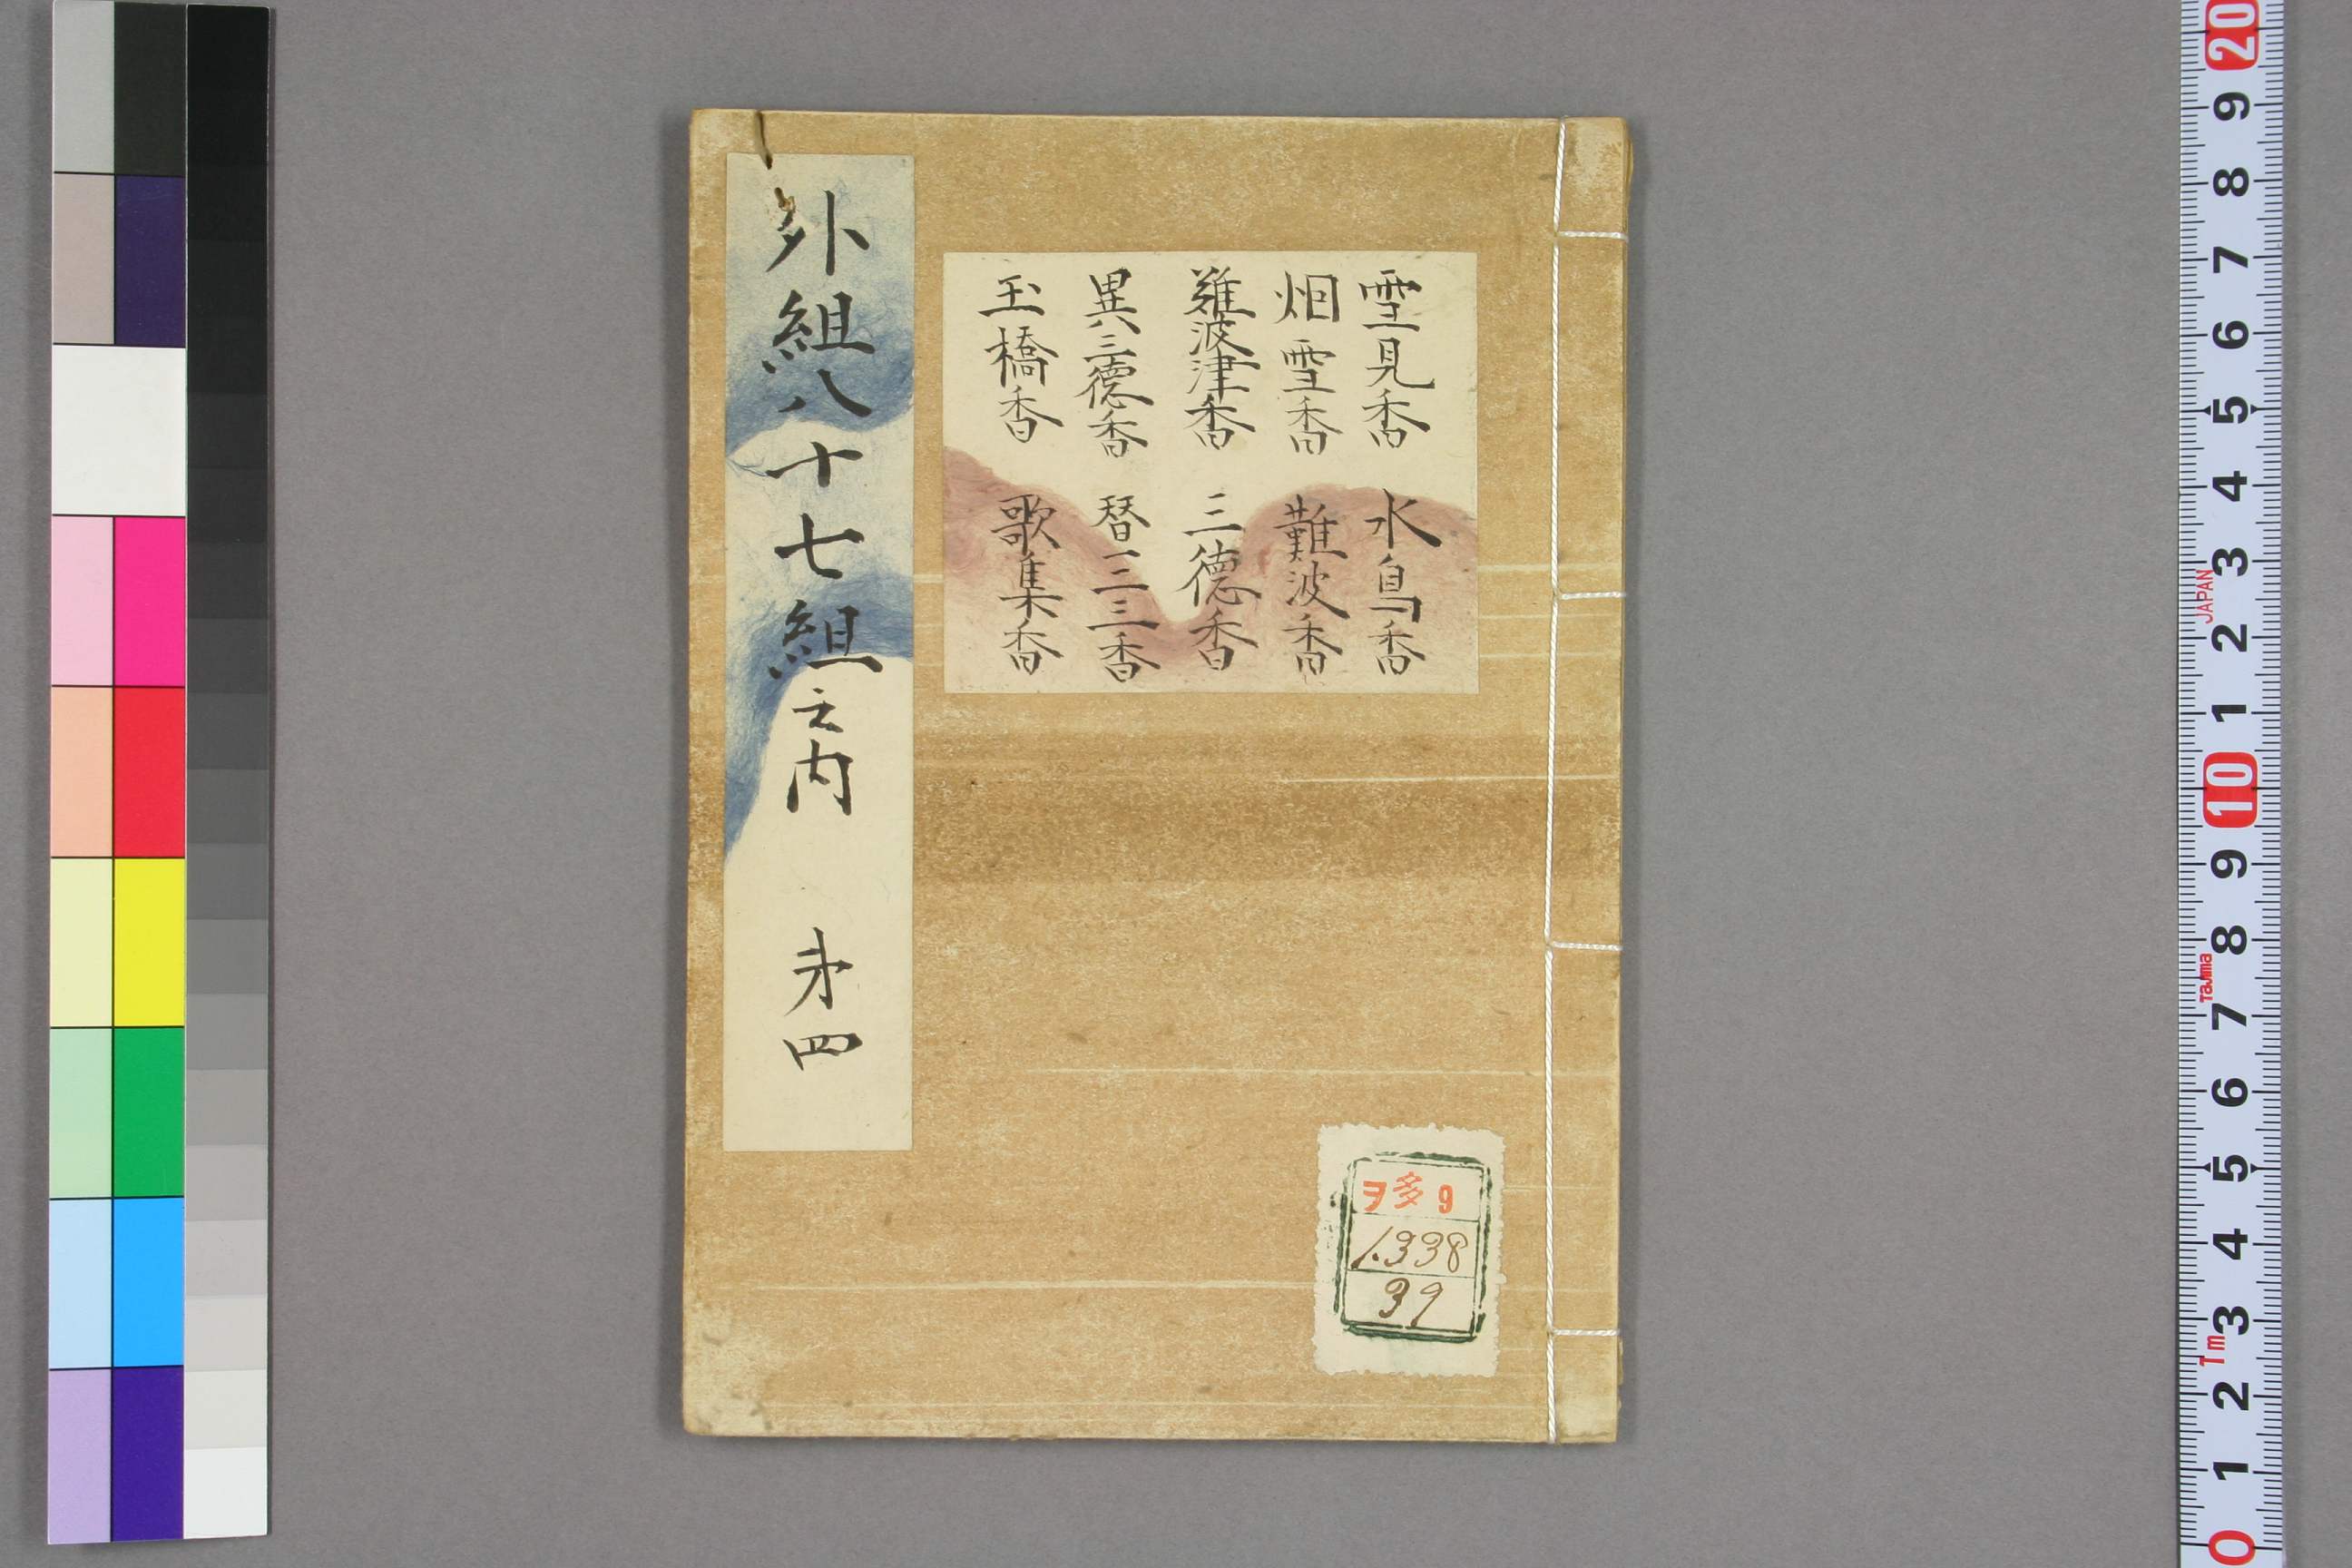 外組八十七組之内 㐧四
雪見香 水鳥香
烟雪香 難波香
難波津香 三德香
異三德香 替三三香
玉橋香 歌集香
ヲ多9
1.338
39
20
9
8
7
6
5
4
3
2
1
10
9
8
7
6
5
4
3
2
1
0
JAPAN
Tajima
1m